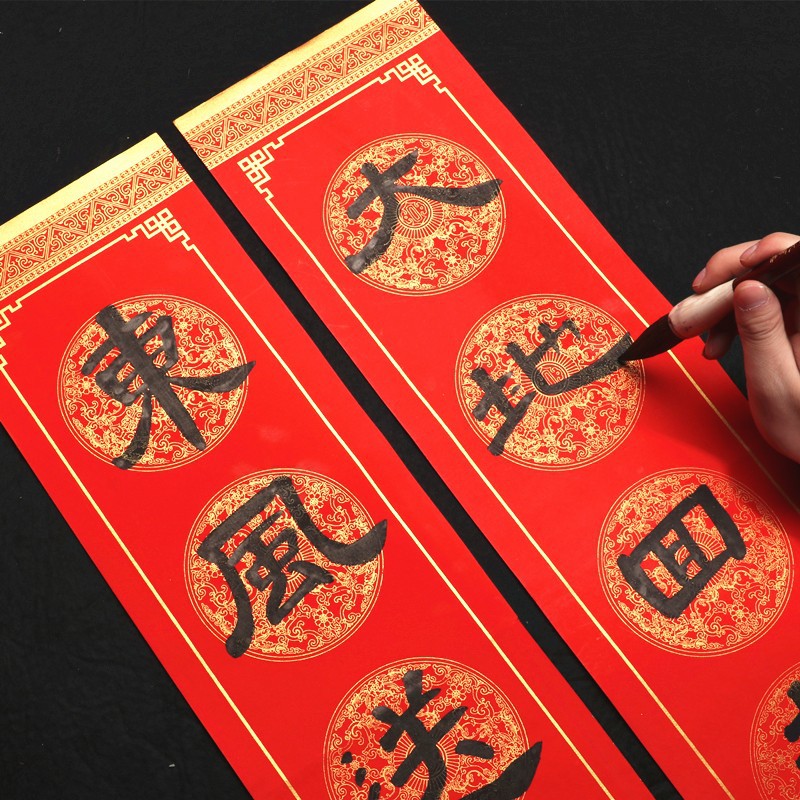 大地回
東風送